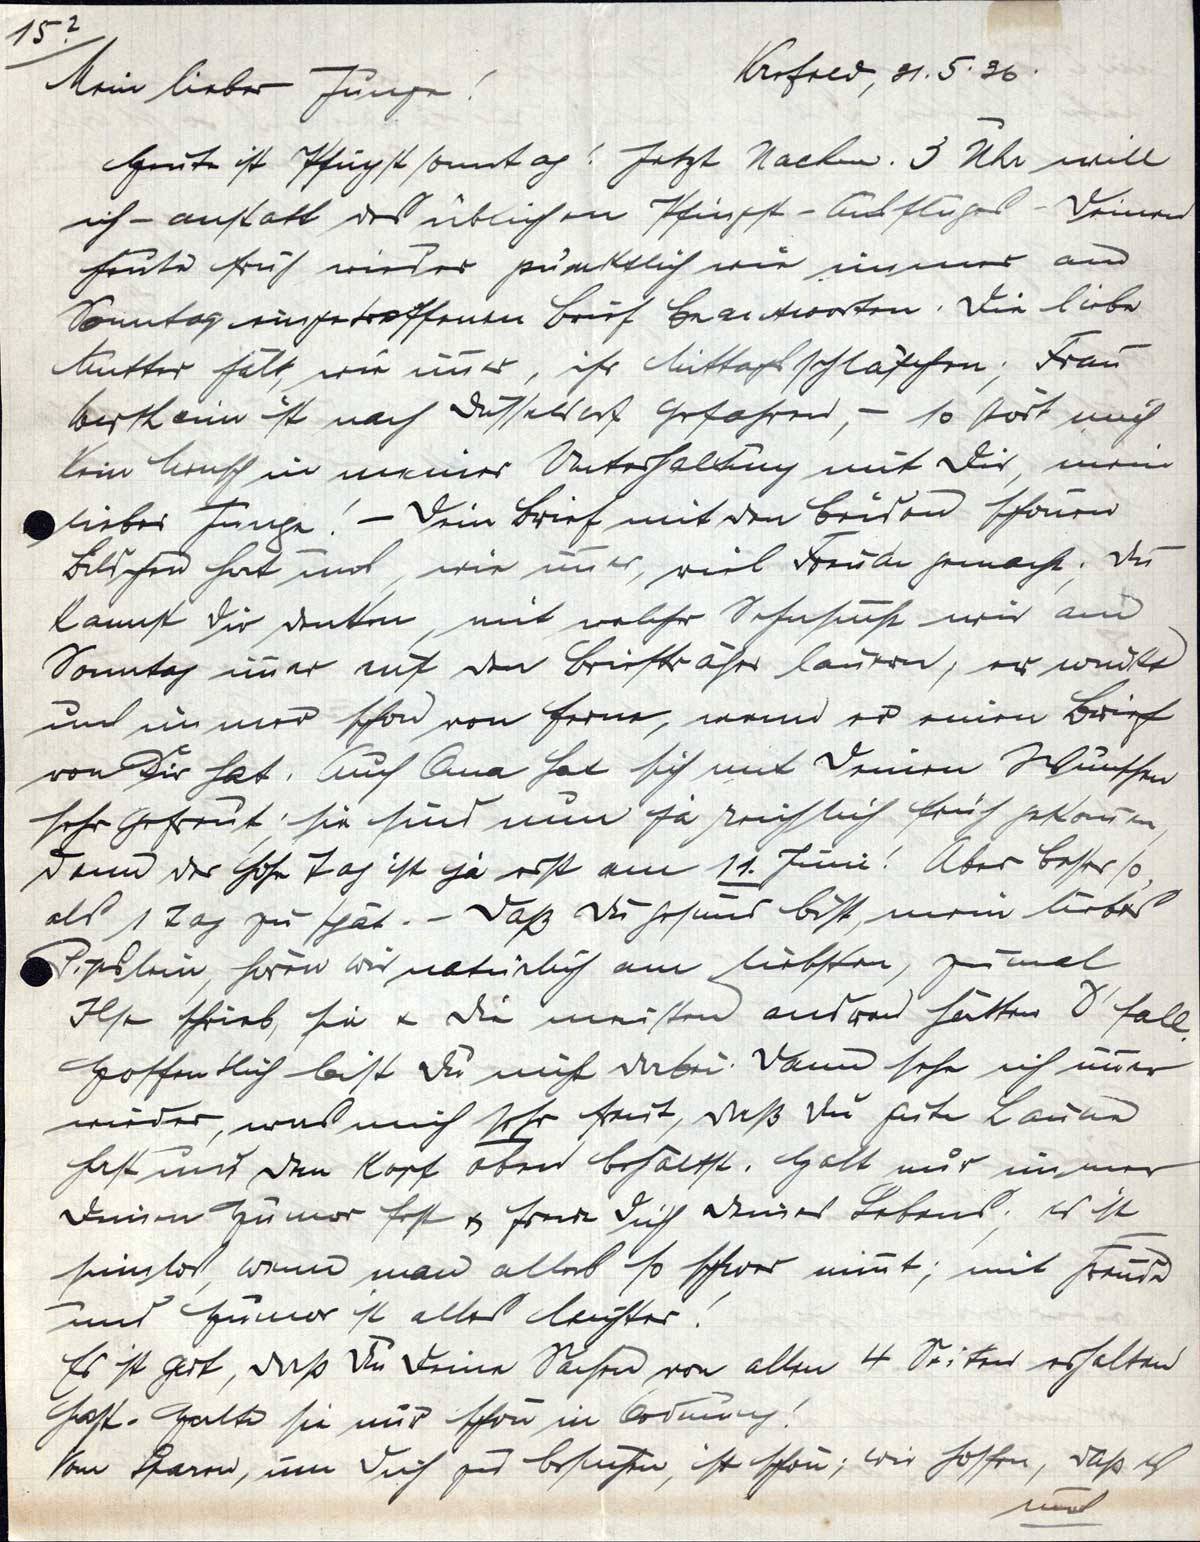 15?
Krefeld, 31.5.36.
Mein lieber Junge!
Heute ist Pfingstsonntag! Jetzt Nachm. 3 Uhr will
ich – anstatt des üblichen Pfingst-Ausfluges – Deinen
heute früh wieder pünktlich wie immer am
Sonntag eingetroffenen Brief beantworten. Die liebe
Mutter hält, wie immer, ihr Mittagsschläfchen; Frau
Wertheim ist nach Düsseldorf gefahren, – so stört mich
kein Mensch in meiner Unterhaltung mit Dir, mein
lieber Junge! – Dein Brief mit den beiden schönen
Bildchen hat uns, wie immer, viel Freude gemacht. Du
kannst Dir denken, mit welcher Sehnsucht wir am
Sonntag immer auf den Briefträger lauern, er winkt
uns immer schon von ferne, wenn er einen Brief
von Dir hat. Auch Oma hat sich mit Deinen Wünschen
sehr gefreut; sie sind nun ja reichlich früh gekommen,
denn der hohe Tag ist ja erst am 11. Juni! Aber besser so,
als 1 Tag zu spät. – Daß Du gesund bist, mein liebes
Pipslein, hören wir natürlich am liebsten, zumal
Ilse schrieb, sie & die meisten andern hätten D'fall.
Hoffentlich bist Du nicht dabei. Dann sehe ich immer
wieder, was mich sehr freut, daß Du gute Laune
hast und den Kopf oben behältst. Halt nur immer
Deinen Humor fest & freue Dich Deines Lebens; es ist
sinnlos, wenn man alles so schwer nimmt; mit Freude
und Humor ist alles leichter!
Es ist gut, daß Du Deine Sachen von allen 4 Seiten erhalten
hast. Halte sie nur schön in Ordnung!
Vom Sparen, um Dich zu besuchen, ist schön; wir hoffen, daß es
uns